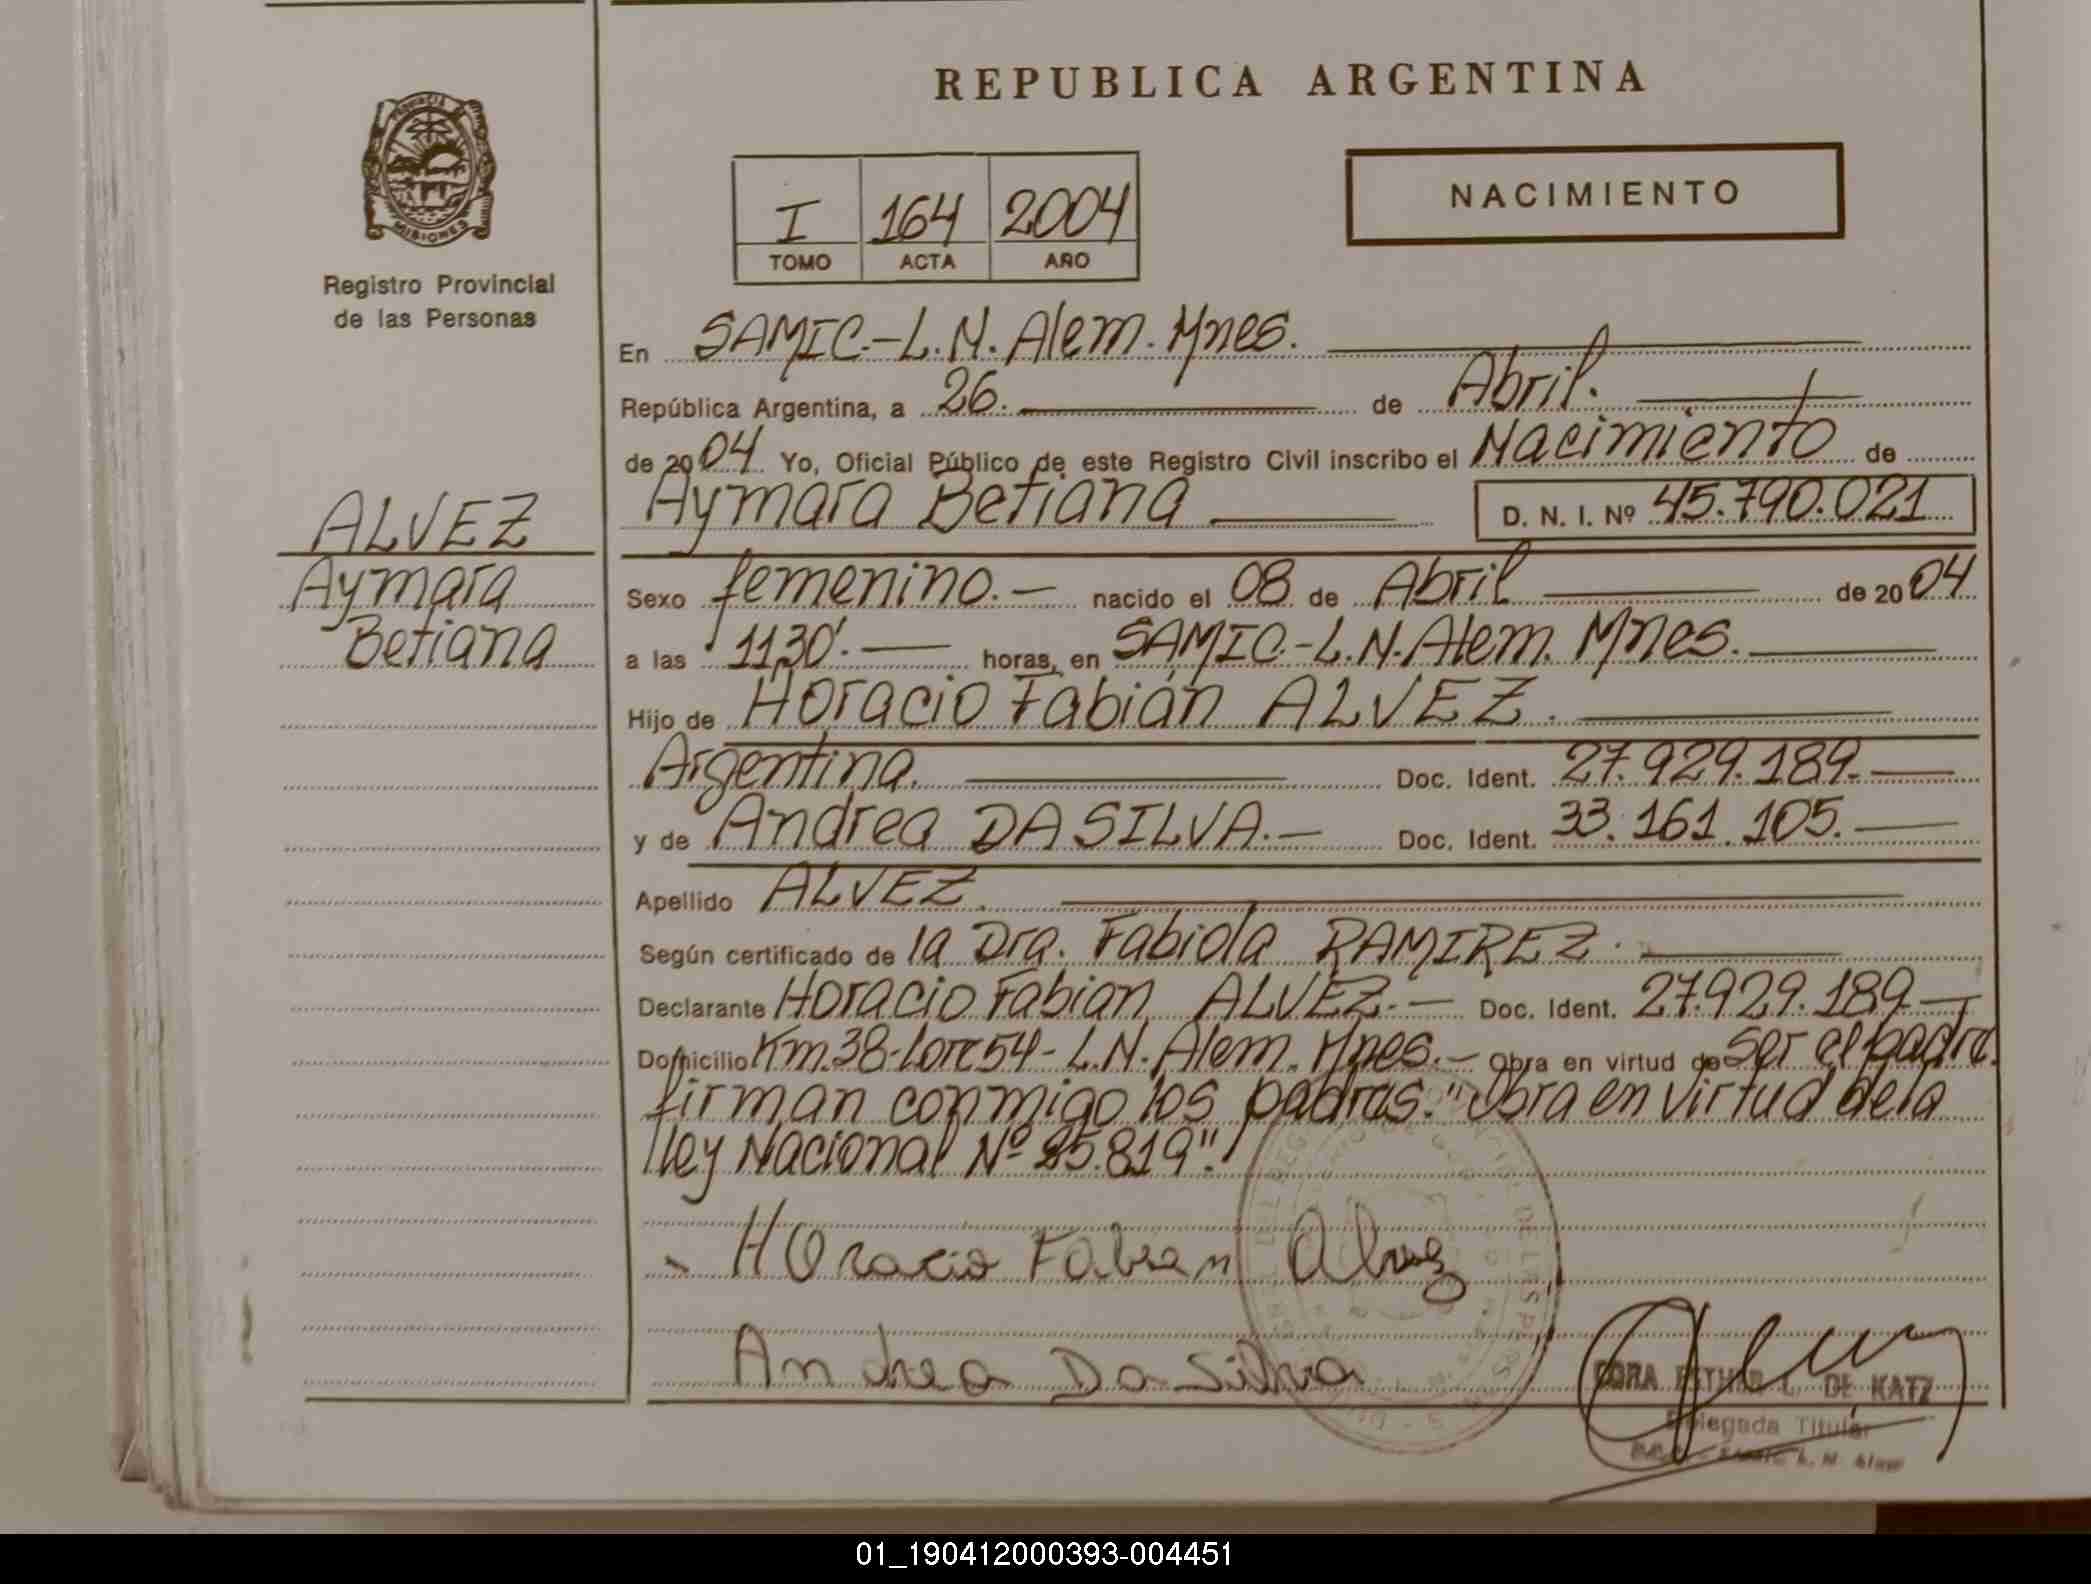 REPUBLICA ARGENTINA
PROVINCIA
MISIONES
Registro Provincial
de las Personas
I 164 2004
TOMO ACTA AÑO
NACIMIENTO
En SAMIC.-L.N. Alem. Mnes.
República Argentina, a 26. de Abril.
de 2004 Yo, Oficial Público de este Registro Civil inscribo el Nacimiento de
Aymara Betiana D. N. I. Nº 45.790.021
ALVEZ
Aymara
Betiana
Sexo femenino.- nacido el 08 de Abril de 2004
a las 11,30'.- horas, en SAMIC.-L.N. Alem. Mnes.
Hijo de Horacio Fabián ALVEZ.
Argentina. Doc. Ident. 27.929.189.-
y de Andrea DA SILVA.- Doc. Ident. 33.161.105.-
Apellido ALVEZ.
Según certificado de la Dra. Fabiola RAMIREZ.
Declarante Horacio Fabian ALVEZ.- Doc. Ident. 27.929.189.-
Domicilio Km.38-Lote 54- L.N. Alem. Mnes.- Obra en virtud de ser el padre.
firman conmigo los padres. "Obra en virtud de la
ley Nacional Nº 25.819".
Horacio Fabian Alvez
Andrea Da Silva
DORA ESTHER L. DE KATZ
Delegada Titular
L. N. Alem
01_190412000393-004451